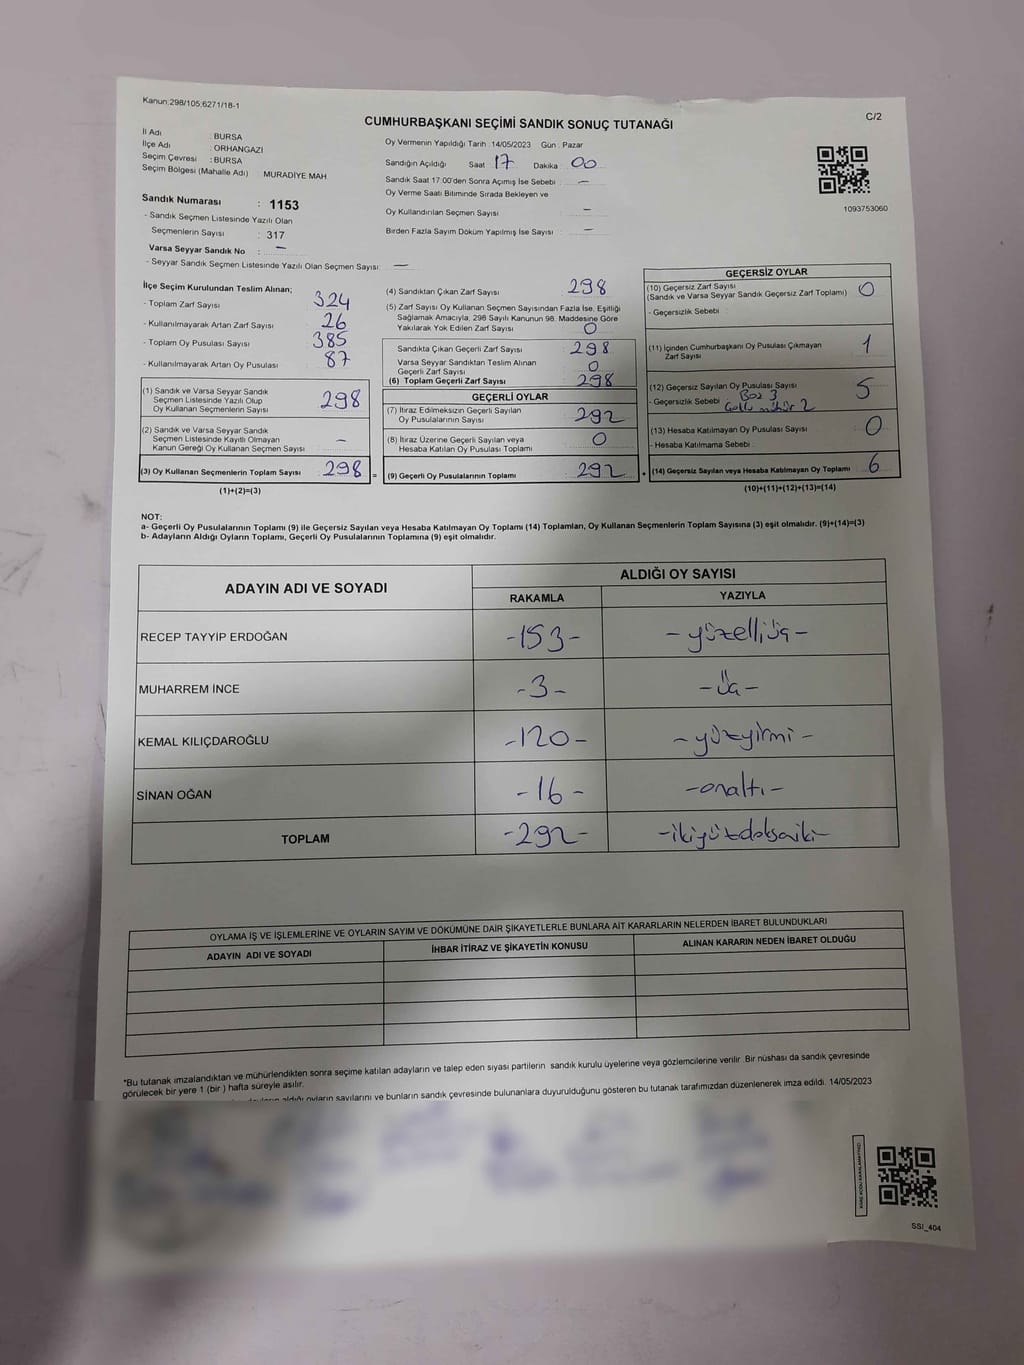 Kanun:298/105;6271/18-1
C/2
CUMHURBAŞKANI SEÇİMİ SANDIK SONUÇ TUTANAĞI
İl Adı : BURSA
İlçe Adı : ORHANGAZİ
Seçim Çevresi : BURSA
Seçim Bölgesi (Mahalle Adı) : MURADİYE MAH.
Sandık Numarası : 1153
- Sandık Seçmen Listesinde Yazılı Olan
Seçmenlerin Sayısı : 317
Varsa Seyyar Sandık No : —
- Seyyar Sandık Seçmen Listesinde Yazılı Olan Seçmen Sayısı: —
Oy Vermenin Yapıldığı Tarih : 14/05/2023 Gün : Pazar
Sandığın Açıldığı Saat 17 Dakika 00
Sandık Saat 17:00'den Sonra Açımış İse Sebebi : —
Oy Verme Saati Bitiminde Sırada Bekleyen ve
Oy Kullandırılan Seçmen Sayısı : —
Birden Fazla Sayım Döküm Yapılmış İse Sayısı : —
1093753060
İlçe Seçim Kurulundan Teslim Alınan;
- Toplam Zarf Sayısı : 324
- Kullanılmayarak Artan Zarf Sayısı : 26
- Toplam Oy Pusulası Sayısı : 385
- Kullanılmayarak Artan Oy Pusulası : 87
(1) Sandık ve Varsa Seyyar Sandık
Seçmen Listesinde Yazılı Olup
Oy Kullanan Seçmenlerin Sayısı : 298
(2) Sandık ve Varsa Seyyar Sandık
Seçmen Listesinde Kayıtlı Olmayan
Kanun Gereği Oy Kullanan Seçmen Sayısı : —
(3) Oy Kullanan Seçmenlerin Toplam Sayısı : 298 =
(1)+(2)=(3)
(4) Sandıktan Çıkan Zarf Sayısı : 298
(5) Zarf Sayısı Oy Kullanan Seçmen Sayısından Fazla İse, Eşitliği
Sağlamak Amacıyla, 298 Sayılı Kanunun 98. Maddesine Göre
Yakılarak Yok Edilen Zarf Sayısı : 0
Sandıkta Çıkan Geçerli Zarf Sayısı : 298
Varsa Seyyar Sandıktan Teslim Alınan
Geçerli Zarf Sayısı : 0
(6) Toplam Geçerli Zarf Sayısı : 298
GEÇERLİ OYLAR
(7) İtiraz Edilmeksizin Geçerli Sayılan
Oy Pusulalarının Sayısı : 292
(8) İtiraz Üzerine Geçerli Sayılan veya
Hesaba Katılan Oy Pusulası Toplamı : 0
(9) Geçerli Oy Pusulalarının Toplamı : 292 +
GEÇERSİZ OYLAR
(10) Geçersiz Zarf Sayısı
(Sandık ve Varsa Seyyar Sandık Geçersiz Zarf Toplamı) : 0
- Geçersizlik Sebebi :
(11) İçinden Cumhurbaşkanı Oy Pusulası Çıkmayan
Zarf Sayısı : 1
(12) Geçersiz Sayılan Oy Pusulası Sayısı : 5
- Geçersizlik Sebebi : Boş 3
Çoklu mühür 2
(13) Hesaba Katılmayan Oy Pusulası Sayısı : 0
- Hesaba Katılmama Sebebi :
(14) Geçersiz Sayılan veya Hesaba Katılmayan Oy Toplamı : 6
(10)+(11)+(12)+(13)=(14)
NOT:
a- Geçerli Oy Pusulalarının Toplamı (9) ile Geçersiz Sayılan veya Hesaba Katılmayan Oy Toplamı (14) Toplamları, Oy Kullanan Seçmenlerin Toplam Sayısına (3) eşit olmalıdır. (9)+(14)=(3)
b- Adayların Aldığı Oyların Toplamı, Geçerli Oy Pusulalarının Toplamına (9) eşit olmalıdır.
ADAYIN ADI VE SOYADI
ALDIĞI OY SAYISI
RAKAMLA YAZIYLA
RECEP TAYYİP ERDOĞAN -153- -yüzelliüç-
MUHARREM İNCE -3- -üç-
KEMAL KILIÇDAROĞLU -120- -yüzyirmi-
SİNAN OĞAN -16- -onaltı-
TOPLAM -292- -ikiyüzdoksaniki-
OYLAMA İŞ VE İŞLEMLERİNE VE OYLARIN SAYIM VE DÖKÜMÜNE DAİR ŞİKAYETLERLE BUNLARA AİT KARARLARIN NELERDEN İBARET BULUNDUKLARI
ADAYIN ADI VE SOYADI İHBAR İTİRAZ VE ŞİKAYETİN KONUSU ALINAN KARARIN NEDEN İBARET OLDUĞU
*Bu tutanak imzalandıktan ve mühürlendikten sonra seçime katılan adayların ve talep eden siyasi partilerin sandık kurulu üyelerine veya gözlemcilerine verilir. Bir nüshası da sandık çevresinde
görülecek bir yere 1 (bir) hafta süreyle asılır.
aldığı oyların sayılarını ve bunların sandık çevresinde bulunanlara duyurulduğunu gösteren bu tutanak tarafımızdan düzenlenerek imza edildi. 14/05/2023
SSİ_404